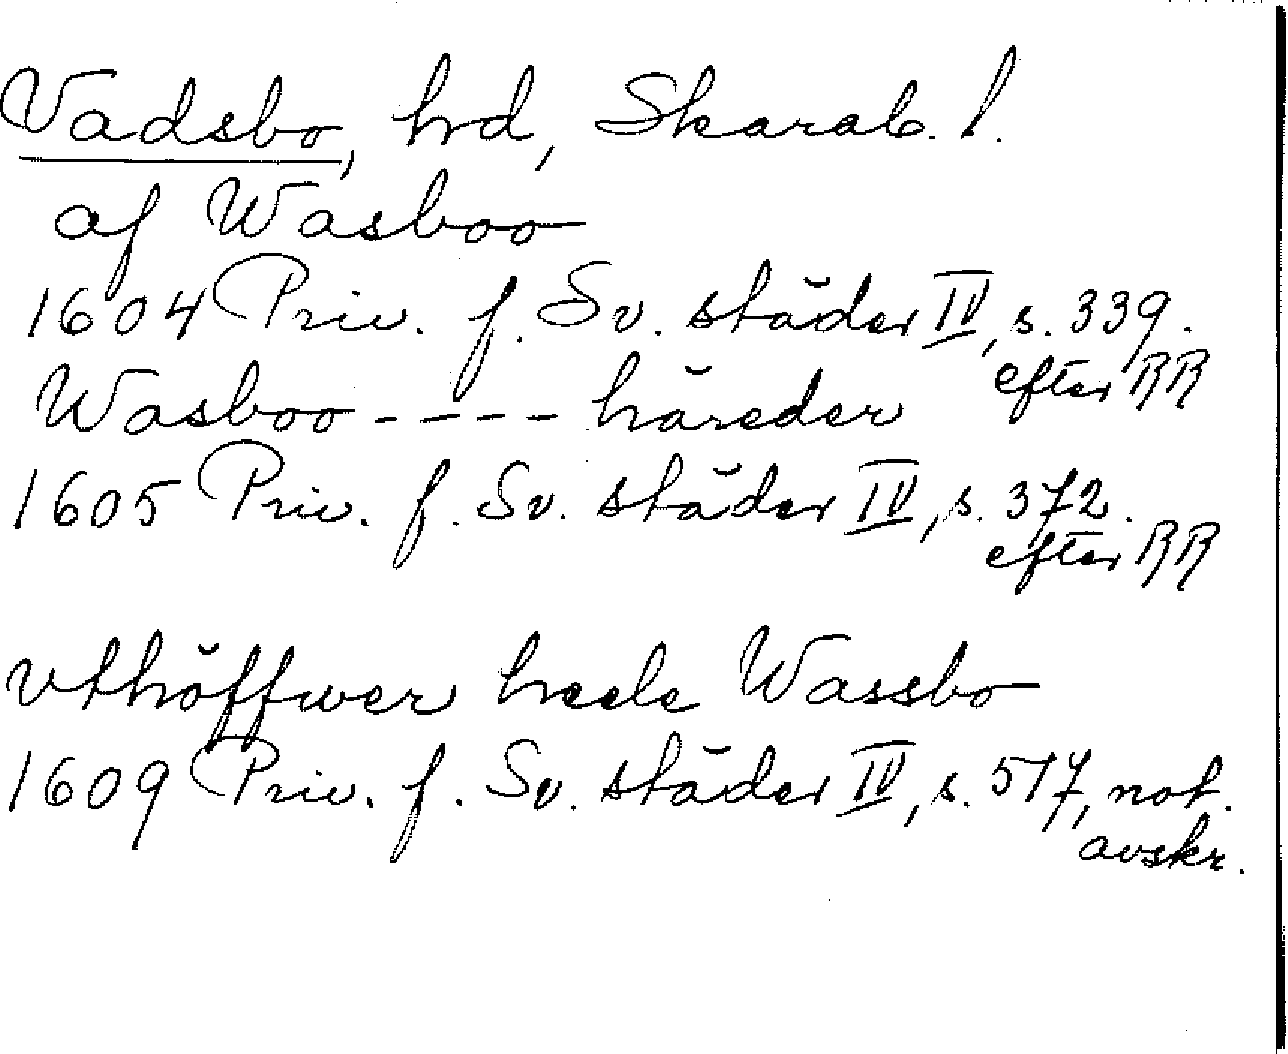 Vadsbo, hd, Skarab. l.
af Wasboo
1604 Priv. f. Sv. städer IV, s. 339.
efter RR
Wasboo - - - - häreder
1605 Priv. f. Sv. städer IV, s. 372.
efter RR
vthöffwer heele Wassbo
1609 Priv. f. Sv. städer IV, s. 517, not.
avskr.